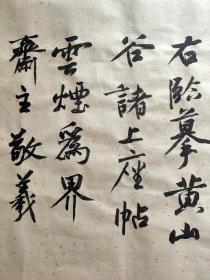 右臨摹黄山
谷諸上座帖
雲煙爲界
齋主敬羲